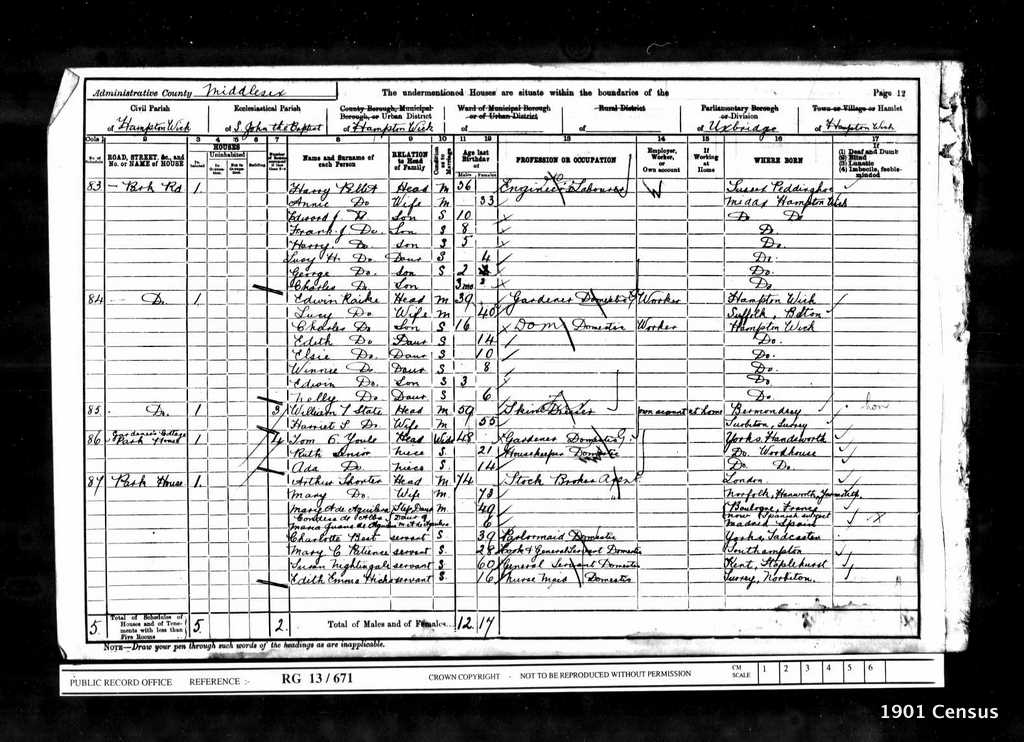 Administrative County Middlesex The undermentioned Houses are situate within the boundaries of the Page 12
Civil Parish Ecclesiastical Parish County Borough, Municipal Borough, or Urban District Ward of Municipal Borough or of Urban District Rural District Parliamentary Borough or Division Town or Village or Hamlet
of Hampton Wick of S. John the Baptist of Hampton Wick of of Uxbridge of Hampton Wick
Cols 1 2 3 4 5 6 7 8 9 10 11 12 13 14 15 16 17
ROAD, STREET, &c., and No. or NAME of HOUSE HOUSES Uninhabited Name and Surname of each Person RELATION to Head of Family Condition as to Marriage Age last Birthday of Males Females PROFESSION OR OCCUPATION Employer, Worker, or Own account If Working at Home WHERE BORN If (1) Deaf and Dumb (2) Blind (3) Lunatic (4) Imbecile, feeble-minded
83 Park Rd 1 Harry Head M 36 Engineer's Labourer W Sussex
Annie Do Wife M 33 Hampton Wick
Edward J. Do Son S 10 Do Do
Frank J Do. Son S 8 Do.
Harry Do. Son S 5 Do.
Lucy H. Do Daur S 4 Do.
George Do. Son S 2 Do.
Charles Do. Son 3mo Do
84 Do. 1 Edwin Raike Head M 39 Gardener Domestic Worker Hampton Wick
Lucy Do Wife M 40 Suffolk,
Charles Do Son S 16 Dom Domestic Worker Hampton Wick
Edith Do Daur S 14 Do.
Elsie Do. Daur S 10 Do.
Winnie Do. Daur S 8 Do
Edwin Do. Son S 3 Do
Nelly Do. Daur S 6 Do.
85 Do. 1 3 William S State Head M 59 Skin Dresser own account at home Bermondsey
Harriet S Do. Wife M 55 Surbiton, Surrey
86 Gardener's Cottage Park House 1 4 Tom G. Youle Head Wid 48 Gardener Domestic G. Yorks. Handsworth
Ruth Senior niece S 21 Housekeeper Domestic Do. Woodhouse
Ada Do. niece S. 14 Do Do.
87 Park House 1. Arthur Shorter Head M 74 Stock Broker Agent London
Mary Do. Wife M. 73 Norfolk,
Mary A de Aguilera Step Daur M. 40 Boulogne, France
Condesa de Alba Daur of now Spanish subject
Maria Juana de Aguilera M A de Aguilera 6 Madrid Spain
Charlotte Best servant S 39 Parlormaid Domestic Yorks, Tadcaster
Mary C Patience servant S. 28 Cook & General Servant Domestic Southampton
Susan Nightingale servant S 60 General Servant Domestic Kent, Staplehurst
Edith Emma Hicks servant S. 16 Nurse Maid Domestic Surrey, Norbiton.
5 Total of Schedules of Houses and of Tenements with less than Five Rooms 5 2 Total of Males and of Females... 12 17
NOTE—Draw your pen through such words of the headings as are inapplicable.
PUBLIC RECORD OFFICE REFERENCE :- RG 13/671 CROWN COPYRIGHT - NOT TO BE REPRODUCED WITHOUT PERMISSION CM SCALE 1 2 3 4 5 6
1901 Census